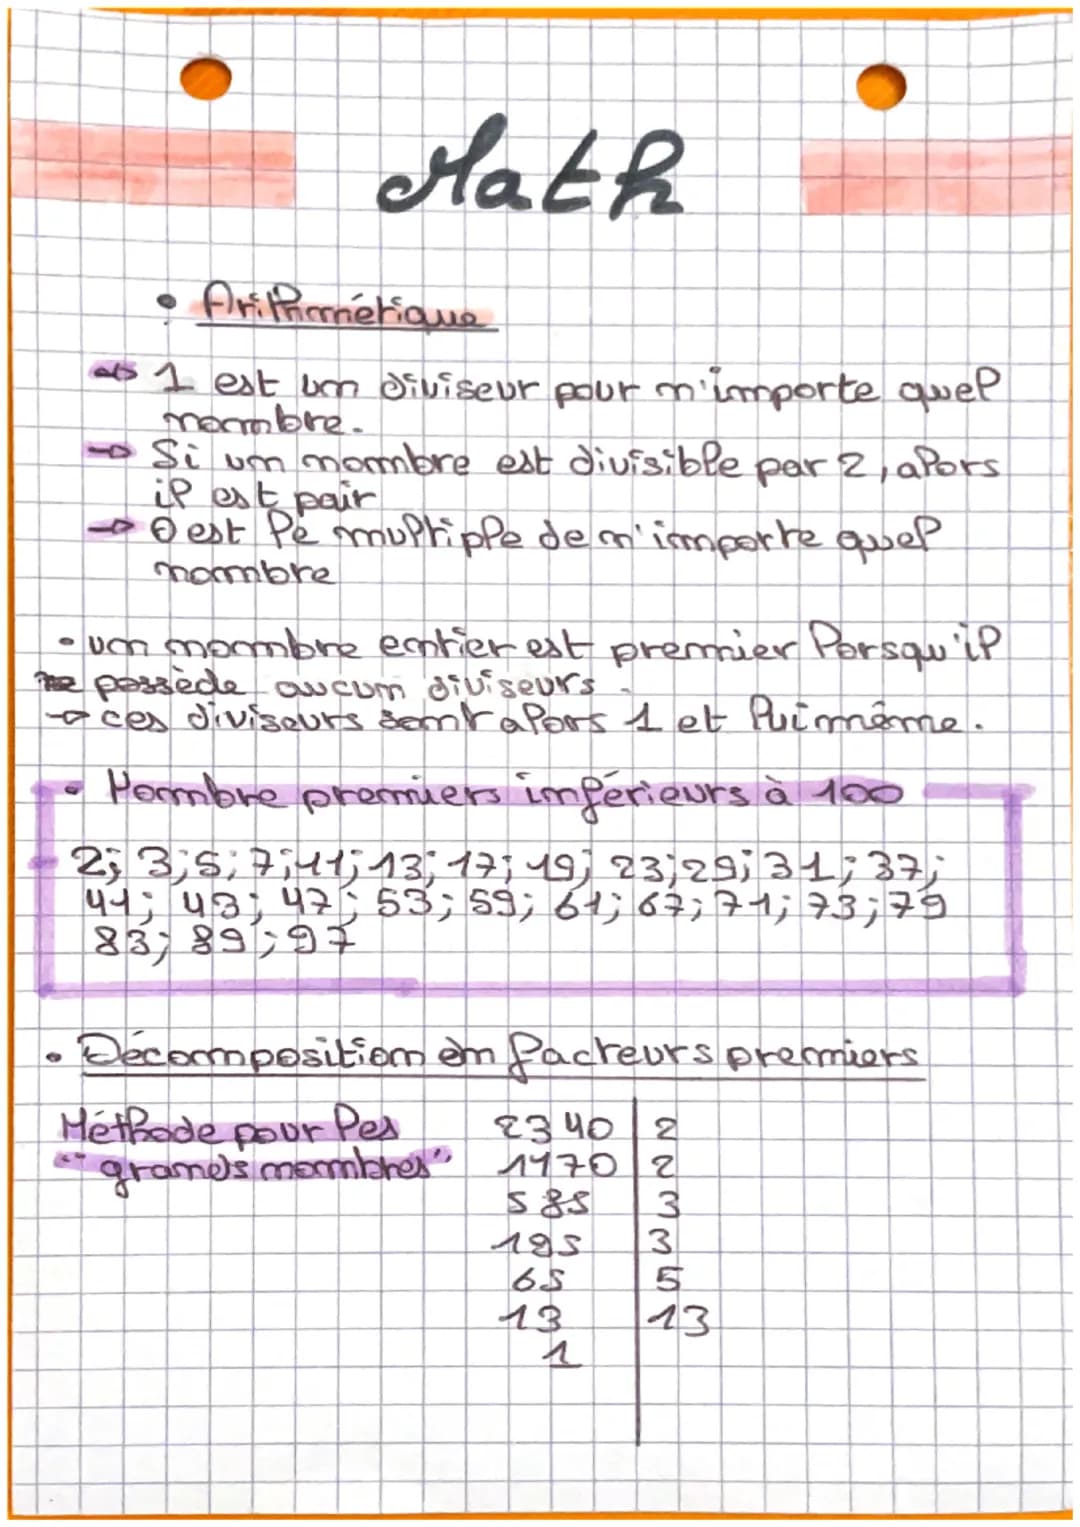 Math
• Arithmétique
→ 1 est un diviseur pour n'importe quel
nombre.
→ Si un nombre est divisible par 2, alors
il est pair
→ 0 est le multiple de n'importe quel
nombre
• un nombre entier est premier lorsqu'il
ne possède aucun diviseurs.
→ ces diviseurs sont alors 1 et lui même.
• Nombre premiers inférieurs à 100
2; 3; 5; 7; 11; 13; 17; 19; 23; 29; 31; 37;
41; 43; 47; 53; 59; 61; 67; 71; 73; 79
83; 89; 97
• Décomposition en facteurs premiers
Méthode pour les
"grands nombres"
2340 | 2
1170 | 2
585 | 3
195 | 3
65 | 5
13 | 13
1